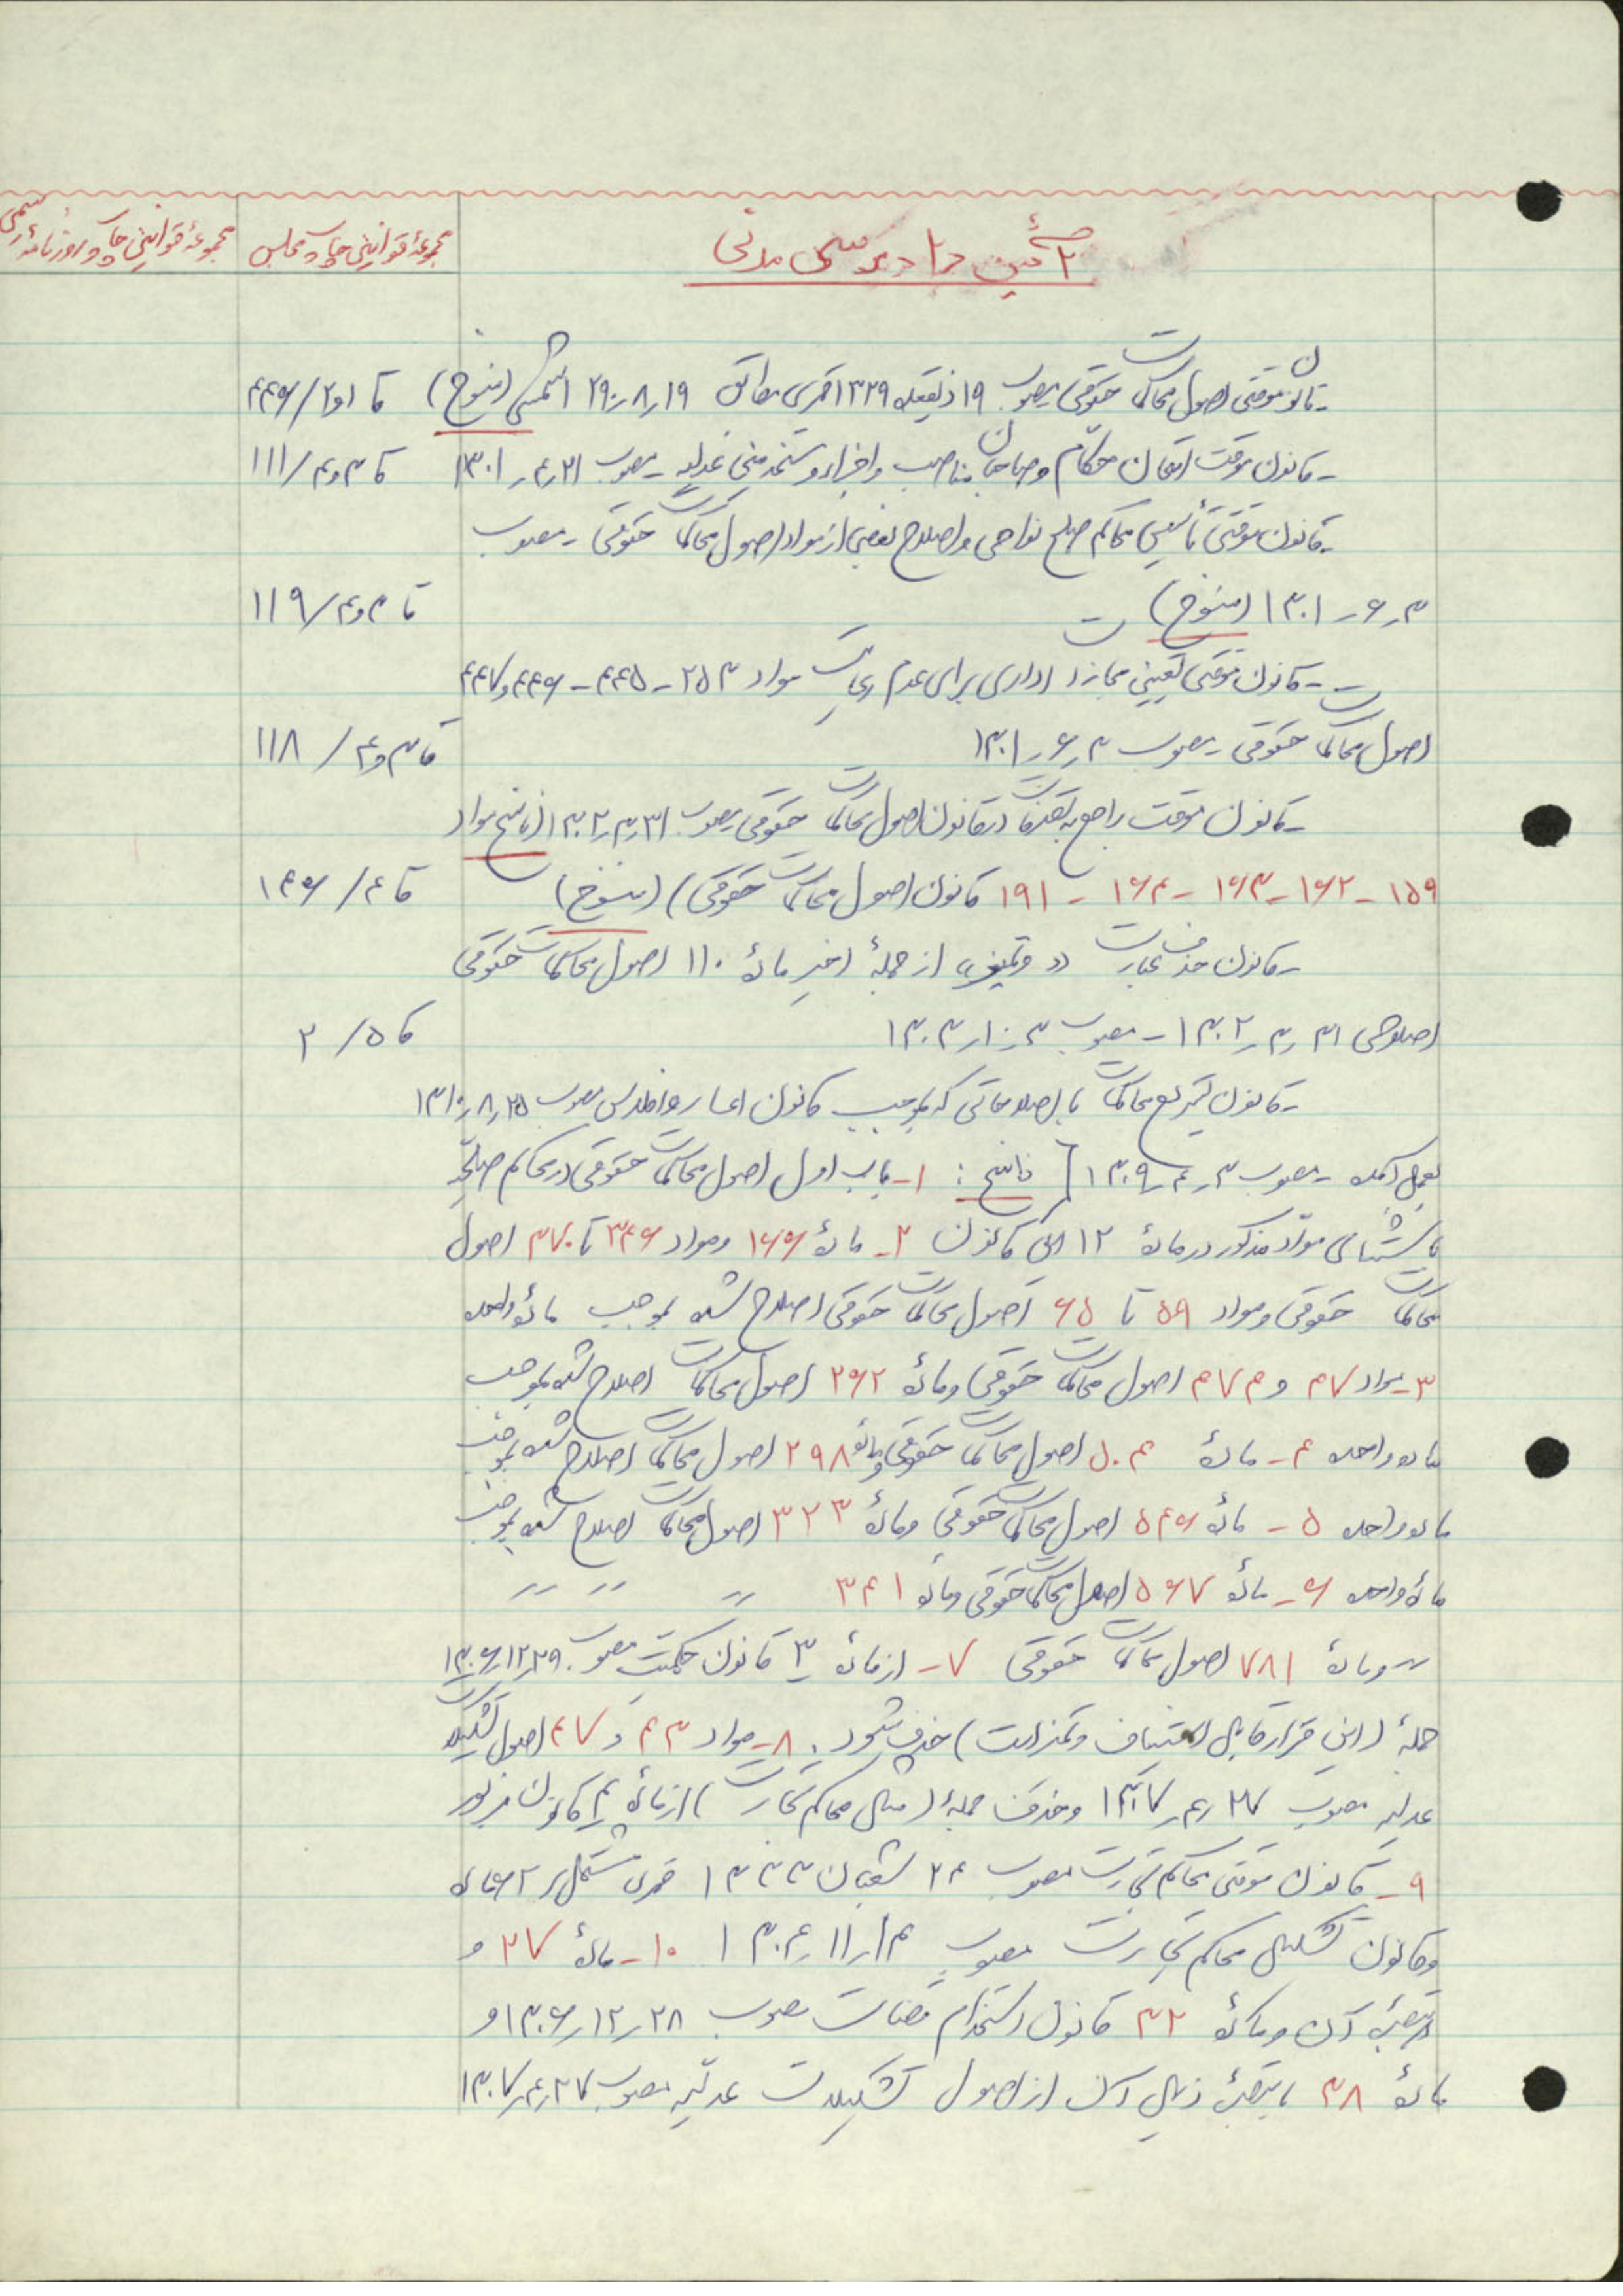 آئین دادرسی مدنی
مجموعهٔ قوانین چاپ مجلس
مجموعهٔ قوانین چاپ روزنامهٔ رسمی
- قانون موقتی اصول محاکمات حقوقی مصوب ۱۹ ذیقعده ۱۳۲۹ قمری مطابق ۱۹ر۸ر۱۲۹۰ شمسی (منسوخ) قا ۱و۲/۴۴۶
- قانون موقت امتحان حکام و صاحبان مناصب و اجزاء و مستخدمین عدلیه - مصوب ۲۱ر۴ر۱۳۰۱ قا ۳و۴/۱۱۱
- قانون موقتی تأسیس محاکم صلح نواحی و اصلاح بعضی از مواد اصول محاکمات حقوقی - مصوب
۳ر۶ر۱۳۰۱ (منسوخ) قا ۳و۴/۱۱۹
- قانون موقتی تعیین مجازات اداری برای عدم رعایت مواد ۲۵۳ - ۴۴۵ - ۴۴۶ و ۴۴۷
اصول محاکمات حقوقی - مصوب ۳ر۶ر۱۳۰۱ قا ۳و۴/۱۱۸
- قانون موقت راجع به در قانون اصول محاکمات حقوقی مصوب ۳۱ر۳ر۱۳۰۲ (ناسخ مواد
۱۵۹ - ۱۶۲ - ۱۶۳ - ۱۶۴ - ۱۹۱ قانون اصول محاکمات حقوقی) (منسوخ) قا ۴/۱۴۶
- قانون حذف عبارت «و تمیز» از جملهٔ اخیر مادهٔ ۱۱۰ اصول محاکمات حقوقی
اصلاحی ۳۱ر۳ر۱۳۰۲ - مصوب ۳ر۱۰ر۱۳۰۳ قا ۵/۲
- قانون تسریع محاکمات با اصلاحاتی که بموجب قانون اعسار و افلاس مصوب ۲۵ر۸ر۱۳۱۰
بعمل آمده - مصوب ۳ر۴ر۱۳۰۹ [ناسخ: ۱- باب اول اصول محاکمات حقوقی در محاکم صلحیه
باستثنای مواد مذکور در مادهٔ ۱۲ این قانون ۲- مادهٔ ۱۶۶ و مواد ۳۴۶ تا ۳۷۰ اصول
محاکمات حقوقی و مواد ۵۹ تا ۶۵ اصول محاکمات حقوقی اصلاح شده بموجب مادهٔ واحده
۳- مواد ۴۷۰ و ۴۷۳ اصول محاکمات حقوقی و مادهٔ ۲۶۲ اصول محاکمات اصلاح شده بموجب
ماده واحده ۴- مادهٔ ۵۰۴ اصول محاکمات حقوقی و مادهٔ ۲۹۸ اصول محاکمات اصلاح شده بموجب
ماده واحده ۵- مادهٔ ۵۴۶ اصول محاکمات حقوقی و مادهٔ ۳۲۳ اصول محاکمات اصلاح شده بموجب
مادهٔ واحده ۶- مادهٔ ۵۶۷ اصول محاکمات حقوقی و مادهٔ ۳۴۱ 〃 〃 〃
〃 و مادهٔ ۷۸۱ اصول محاکمات حقوقی ۷- از مادهٔ ۳ قانون حکمیت مصوب ۲۹ر۱۲ر۱۳۰۶
جملهٔ (این قرار قابل استیناف و تمیز است) حذف میشود. ۸- مواد ۴۳ و ۴۷ اصول تشکیلات
عدلیه مصوب ۲۷ر۴ر۱۳۰۷ و حذف جملهٔ (مثل محاکم تجارت) از مادهٔ ۴ قانون مزبور
۹- قانون موقتی محاکم تجارت مصوب ۲۴ شعبان ۱۳۳۳ قمری مشتمل بر ۲۶ ماده
و قانون تشکیل محاکم تجارت مصوب ۱۴ر۱۱ر۱۳۰۴ ۱۰- مادهٔ ۲۷ و
تبصرهٔ آن و مادهٔ ۳۲ قانون استخدام قضات مصوب ۲۸ر۱۲ر۱۳۰۶ و
مادهٔ ۳۸ با تبصرهٔ ذیل آن از اصول تشکیلات عدلیه مصوب ۲۷ر۴ر۱۳۰۷